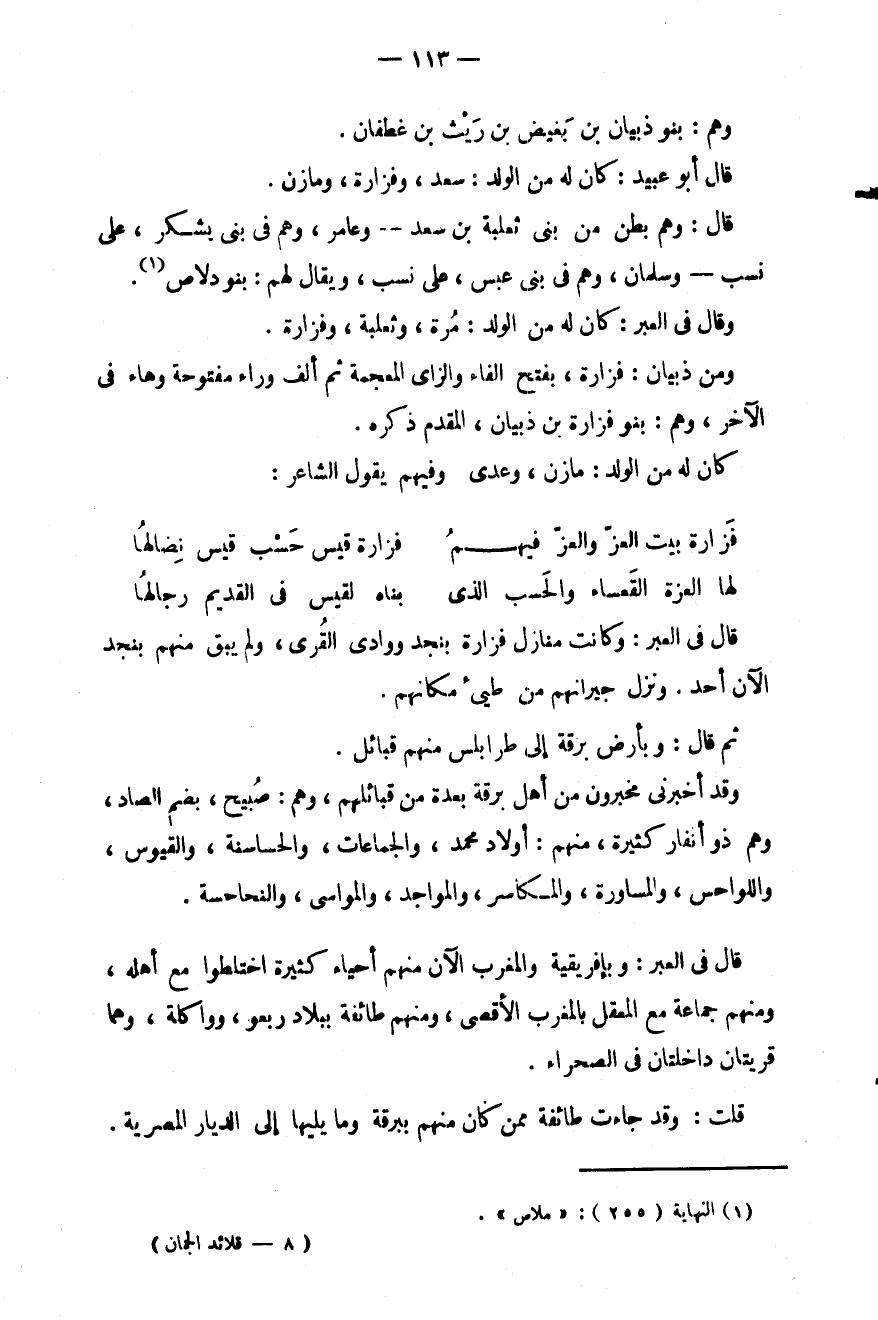 — ١١٣ —
وهم : بنو ذبيان بن بَغيض بن رَيْث بن غطفان .
قال أبو عبيد : كان له من الولد : سعد ، وفزارة ، ومازن .
قال : وهم بطن من بنى ثعلبة بن سعد -- وعامر ، وهم فى بنى يشكر ، على
نسب — وسلمان ، وهم فى بنى عبس ، على نسب ، ويقال لهم : بنو دلاص (١) .
وقال فى العبر : كان له من الولد : مُرة ، وثعلبة ، وفزارة .
ومن ذبيان : فزارة ، بفتح الفاء والزاى المعجمة ثم ألف وراء مفتوحة وهاء فى
الآخر ، وهم : بنو فزارة بن ذبيان ، المقدم ذكره .
كان له من الولد : مازن ، وعدى وفيهم يقول الشاعر :
فَزارة بيت العزّ والعزّ فيهمُ فزارة قيس حَسْب قيس نِضالهُا
لها العزة القَعساء والحَسب الذى بناه لقيس فى القديم رجالهُا
قال فى العبر : وكانت منازل فزارة بنجد ووادى القُرى ، ولم يبق منهم بنجد
الآن أحد . ونزل جيرانهم من طيىء مكانهم .
ثم قال : وبأرض برقة إلى طرابلس منهم قبائل .
وقد أخبرنى مخبرون من أهل برقة بعدة من قبائلهم ، وهم : صُبيح ، بضم الصاد ،
وهم ذو أنفار كثيرة ، منهم : أولاد محمد ، والجماعات ، والحساسنة ، والقيوس ،
واللواحس ، والمساورة ، والمكاسر ، والمواجد ، والمواسى ، والنحاحسة .
قال فى العبر : وبإفريقية والمغرب الآن منهم أحياء كثيرة اختلطوا مع أهله ،
ومنهم جماعة مع المعقل بالمغرب الأقصى ، ومنهم طائفة ببلاد ربعو ، وواكلة ، وهما
قريتان داخلتان فى الصحراء .
قلت : وقد جاءت طائفة ممن كان منهم ببرقة وما يليها إلى الديار المصرية .
(١) النهاية ( ٢٥٥ ) : « ملاص » .
( ٨ — قلائد الجمان )